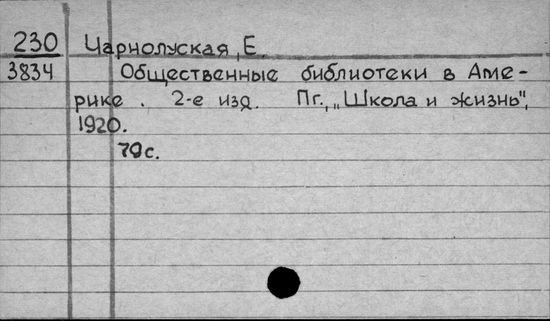 230 Чарнолуская, Е.
3834 Общественные библиотеки в Аме-
рике. 2-е изд. Пг., "Школа и жизнь",
1920.
79с.